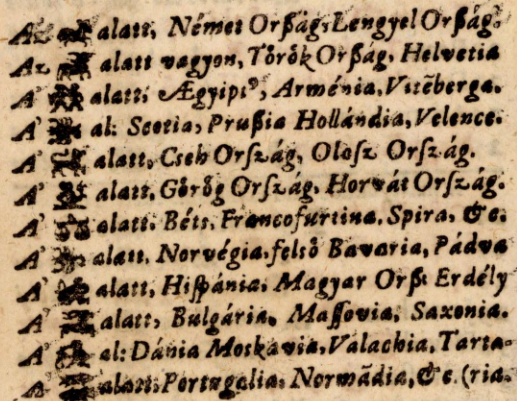 Az alatt, Német Orßág, Lengyel Orßág.
Az alatt vagyon, Török Orßág, Helvetia
A' alatt; Ægyipt9, Arménia, Vitẽberga.
A' al: Scotia, Prußia Hollándia, Velence.
A' alatt, Cseh Orſzág, Olosz Orſzág.
A' alatt, Görög Orſzág, Horvát Orſzág.
A' alatt, Béts, Francofurtina, Spira, &c.
A' alatt, Norvégia, felsö Bavaria, Pádva
A' alatt, Hiſpánia, Magyar Orß: Erdély
A' alatt, Bulgária, Maſſovia, Saxonia.
A' al: Dánia Moskavia, Valachia, Tarta-
A' alatt, Portugalia, Normãdia, &c. (ria.